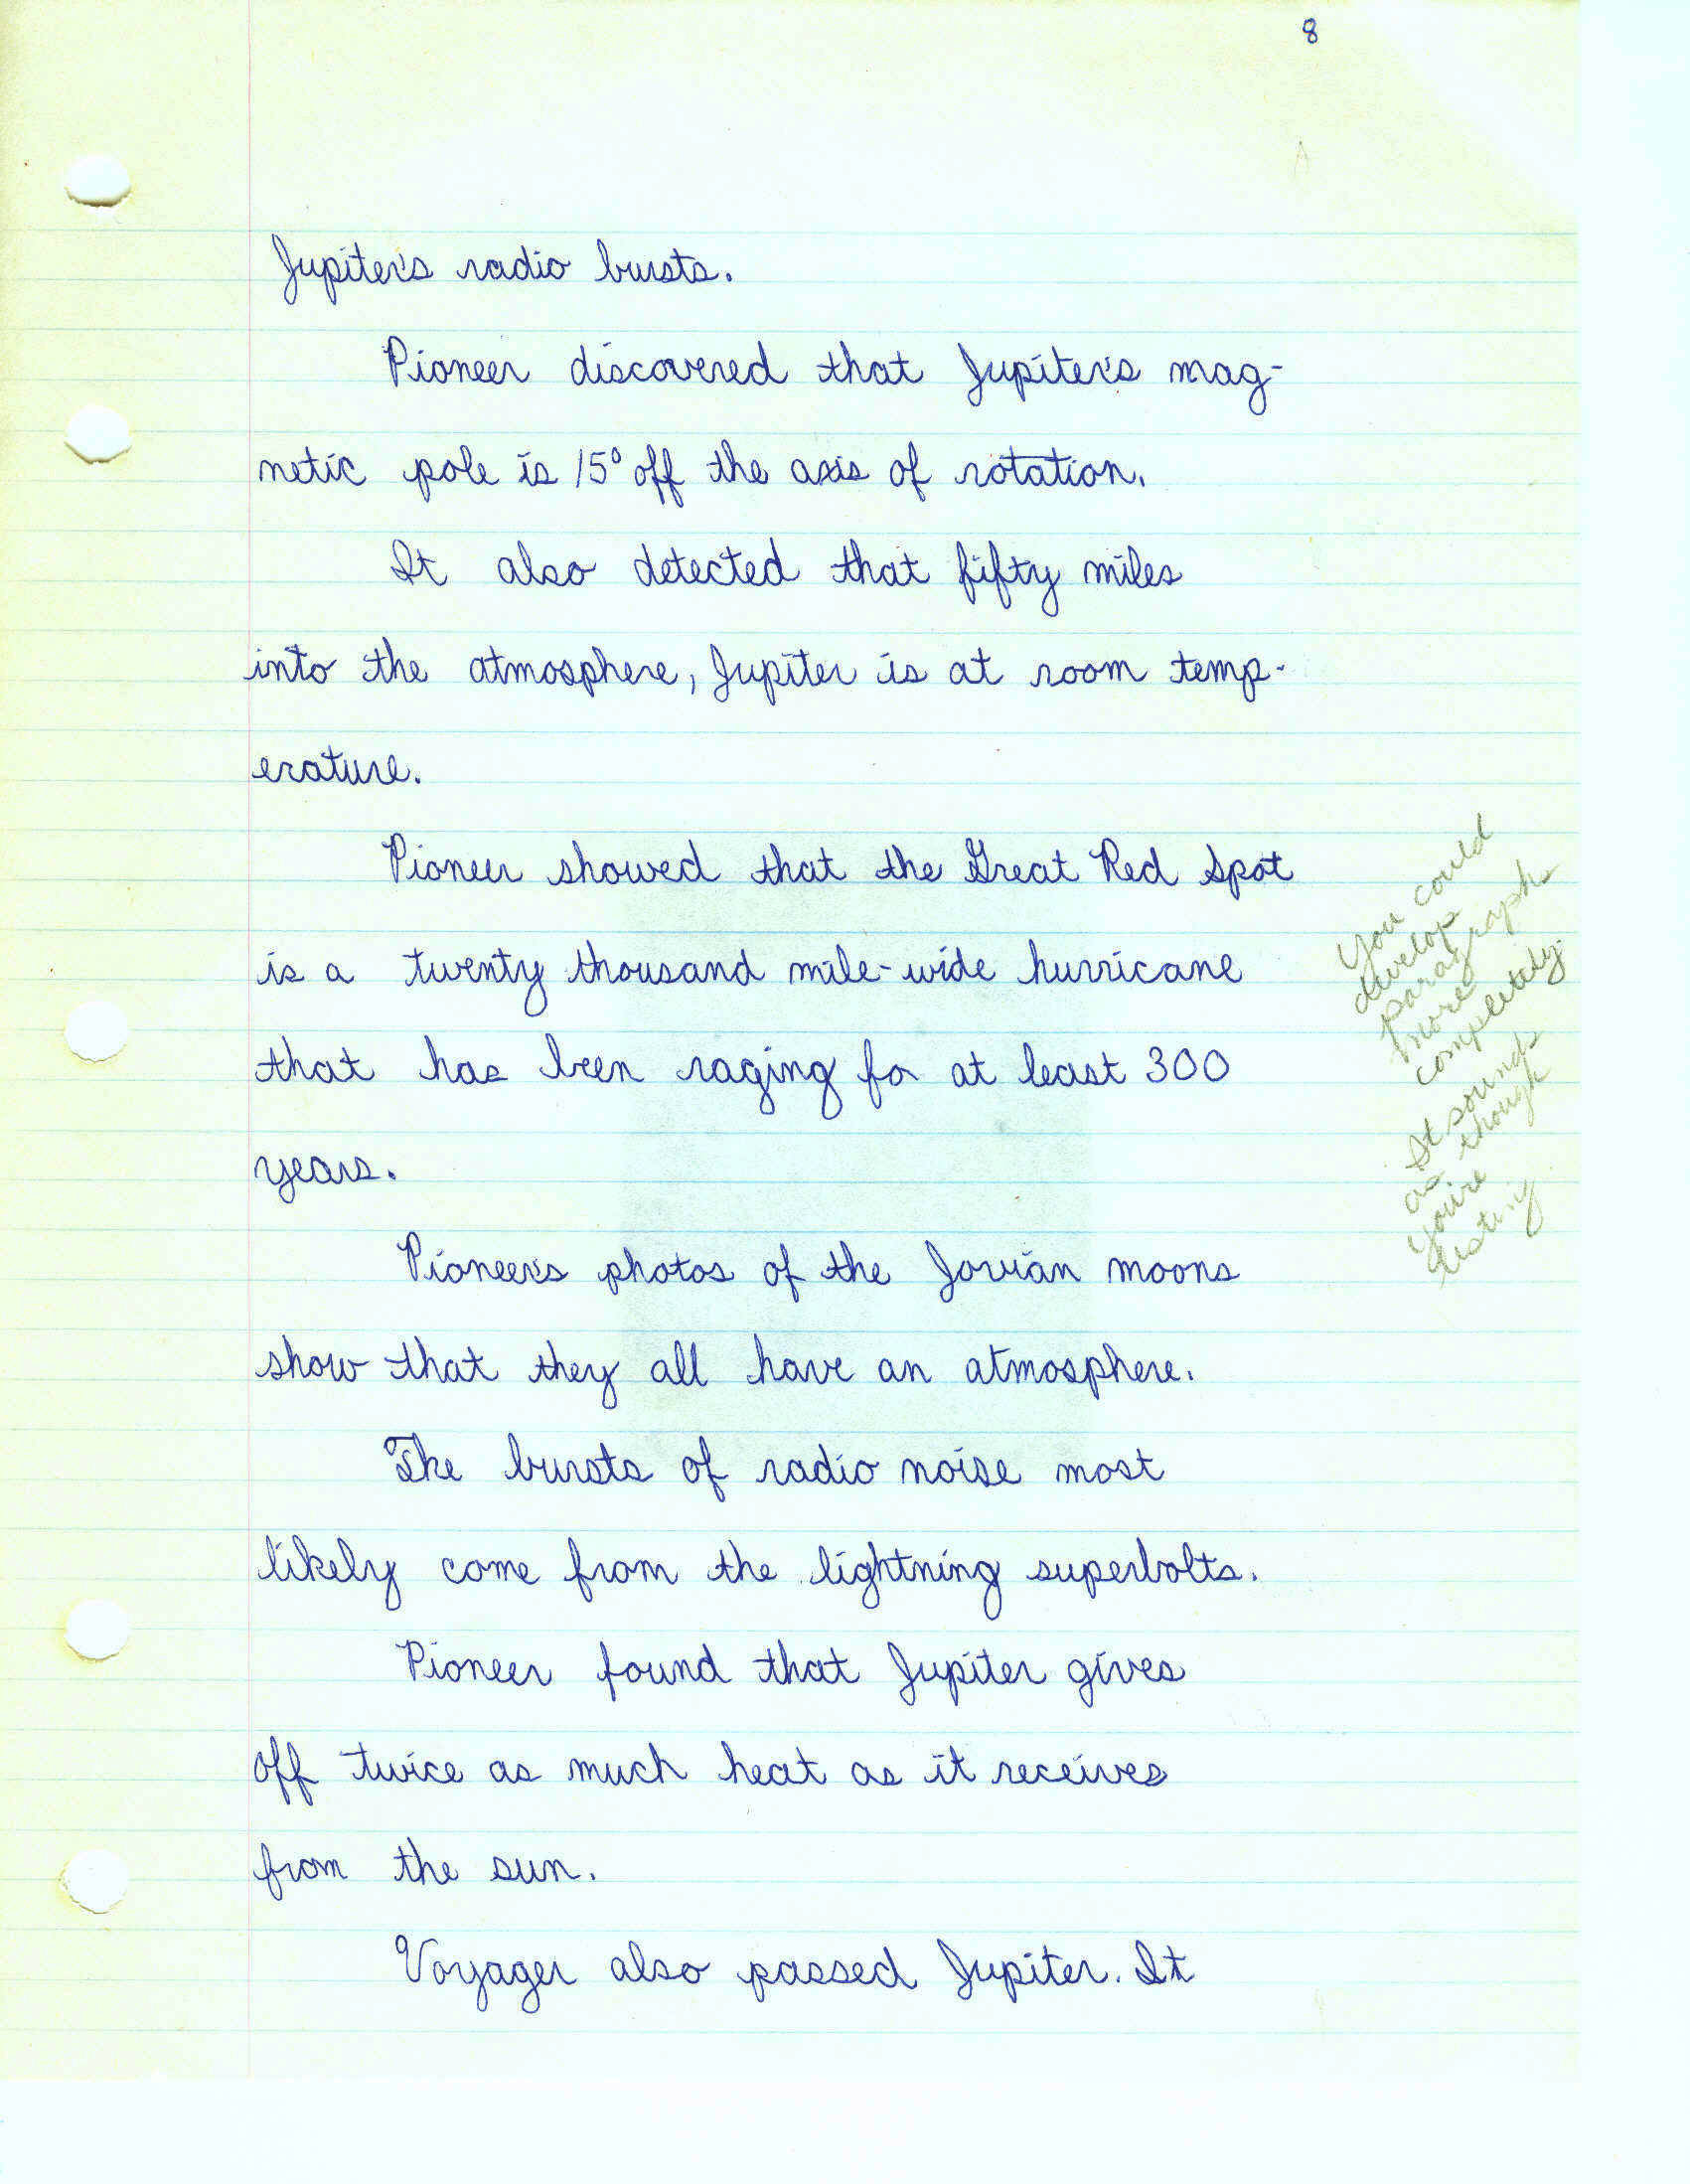 8
Jupiter's radio bursts.
Pioneer discovered that Jupiter's mag-
netic pole is 15° off the axis of rotation.
It also detected that fifty miles
into the atmosphere, Jupiter is at room temp-
erature.
Pioneer showed that the Great Red Spot
is a twenty thousand mile-wide hurricane
that has been raging for at least 300
years.
Pioneer's photos of the Jovian moons
show that they all have an atmosphere.
The bursts of radio noise most
likely come from the lightning superbolts.
Pioneer found that Jupiter gives
off twice as much heat as it receives
from the sun.
Voyager also passed Jupiter. It
You could
develop
paragraph
more
completely.
It sounds
as though
you're
listing